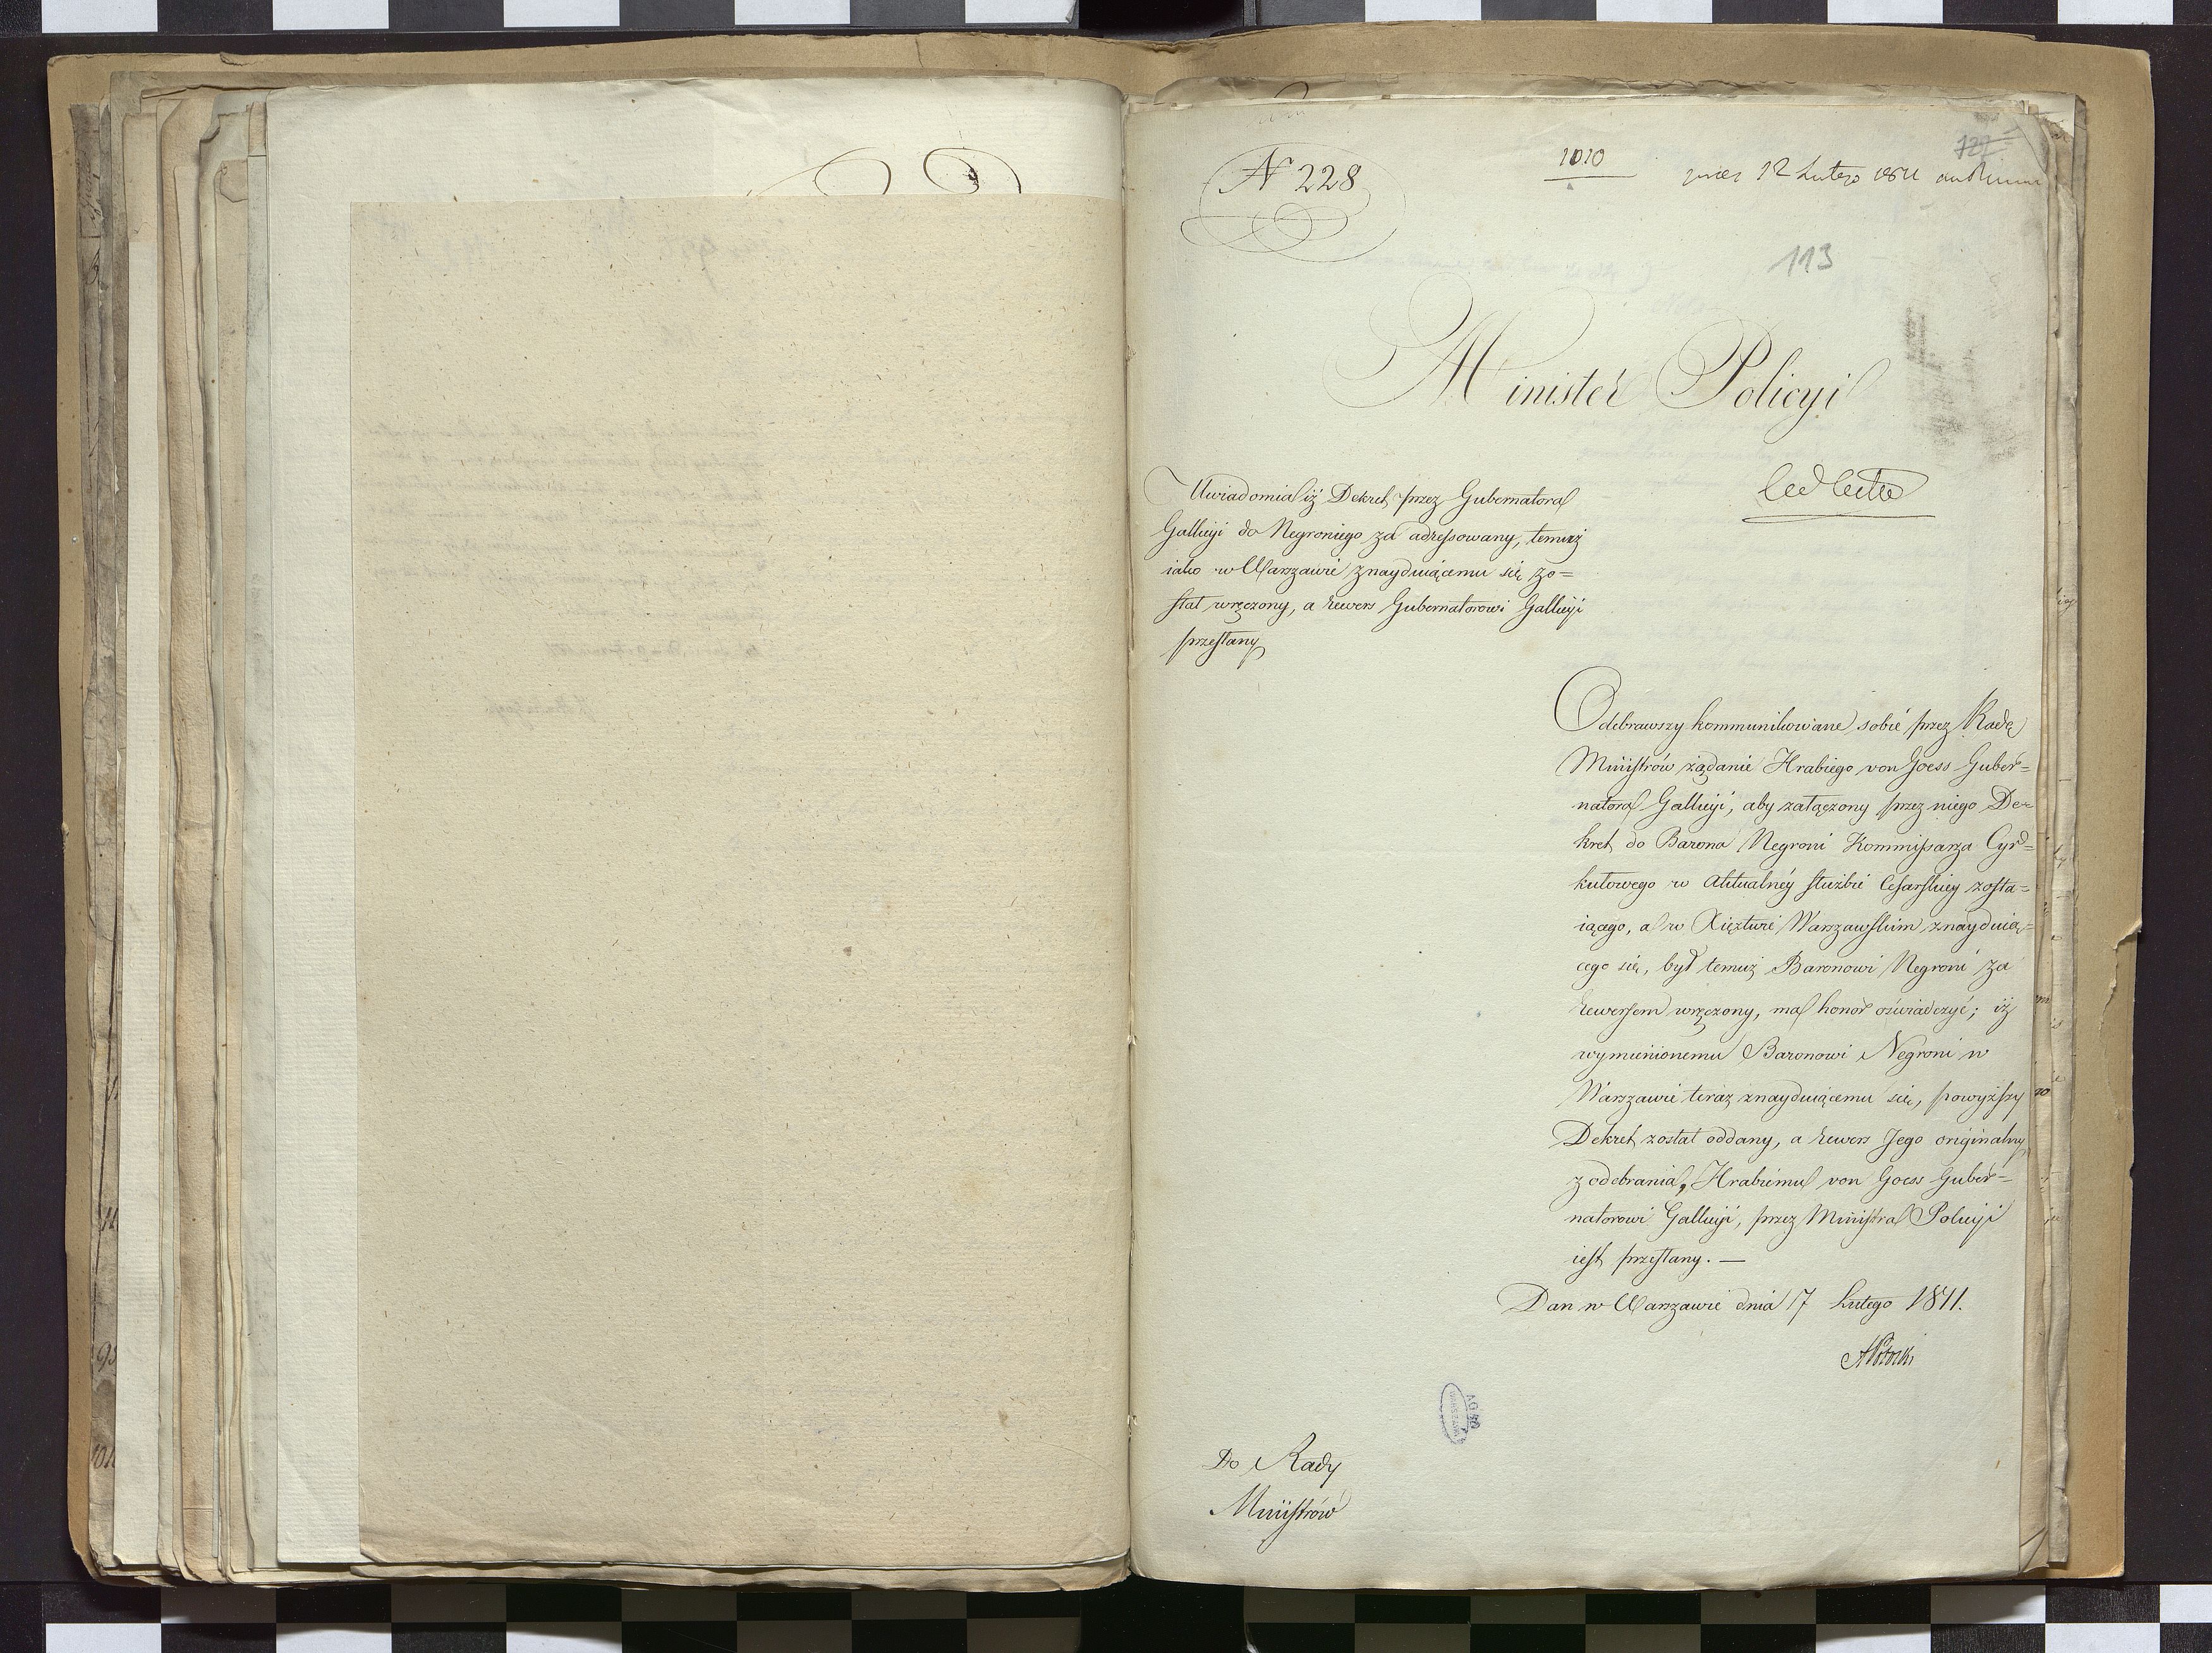 N 228
1010
12 Lutego 1811
727
113
Minister Policyi
Uwiadomia iż Dekret przez Gubernatora
Gallicyi do Negroniego za adressowany, temuż
iako w Warszawie znayduiącemu się zo=
stał wręczony, a rewers Gubernatorowi Gallicyi
przesłany
Odebrawszy kommunikowane sobie przez Radę
Ministrów żądanie Hrabiego von Goess Guber=
natora Gallicyi, aby załączony przez niego De=
kret do Barona Negroni Kommissarza Cyr=
kułowego w Aktualnéy służbie Cesarskiey zosta=
iącego, a w Xięztwie Warszawskim znayduią=
cego się, był temuż Baronowi Negroni za
rewersem wręczony, ma honor oświadczyć; iż
wymienionemu Baronowi Negroni w
Warszawie teraz znayduiącemu się, powyższy
Dekret został oddany, a rewers Jego originalny
z odebrania, Hrabiemu von Goess Guber=
natorowi Gallicyi, przez Ministra Policyi
iest przesłany. —
Dan w Warszawie dnia 17 Lutego 1811.
APotocki
AGAD
WARSZAWA
Do Rady
Ministrów